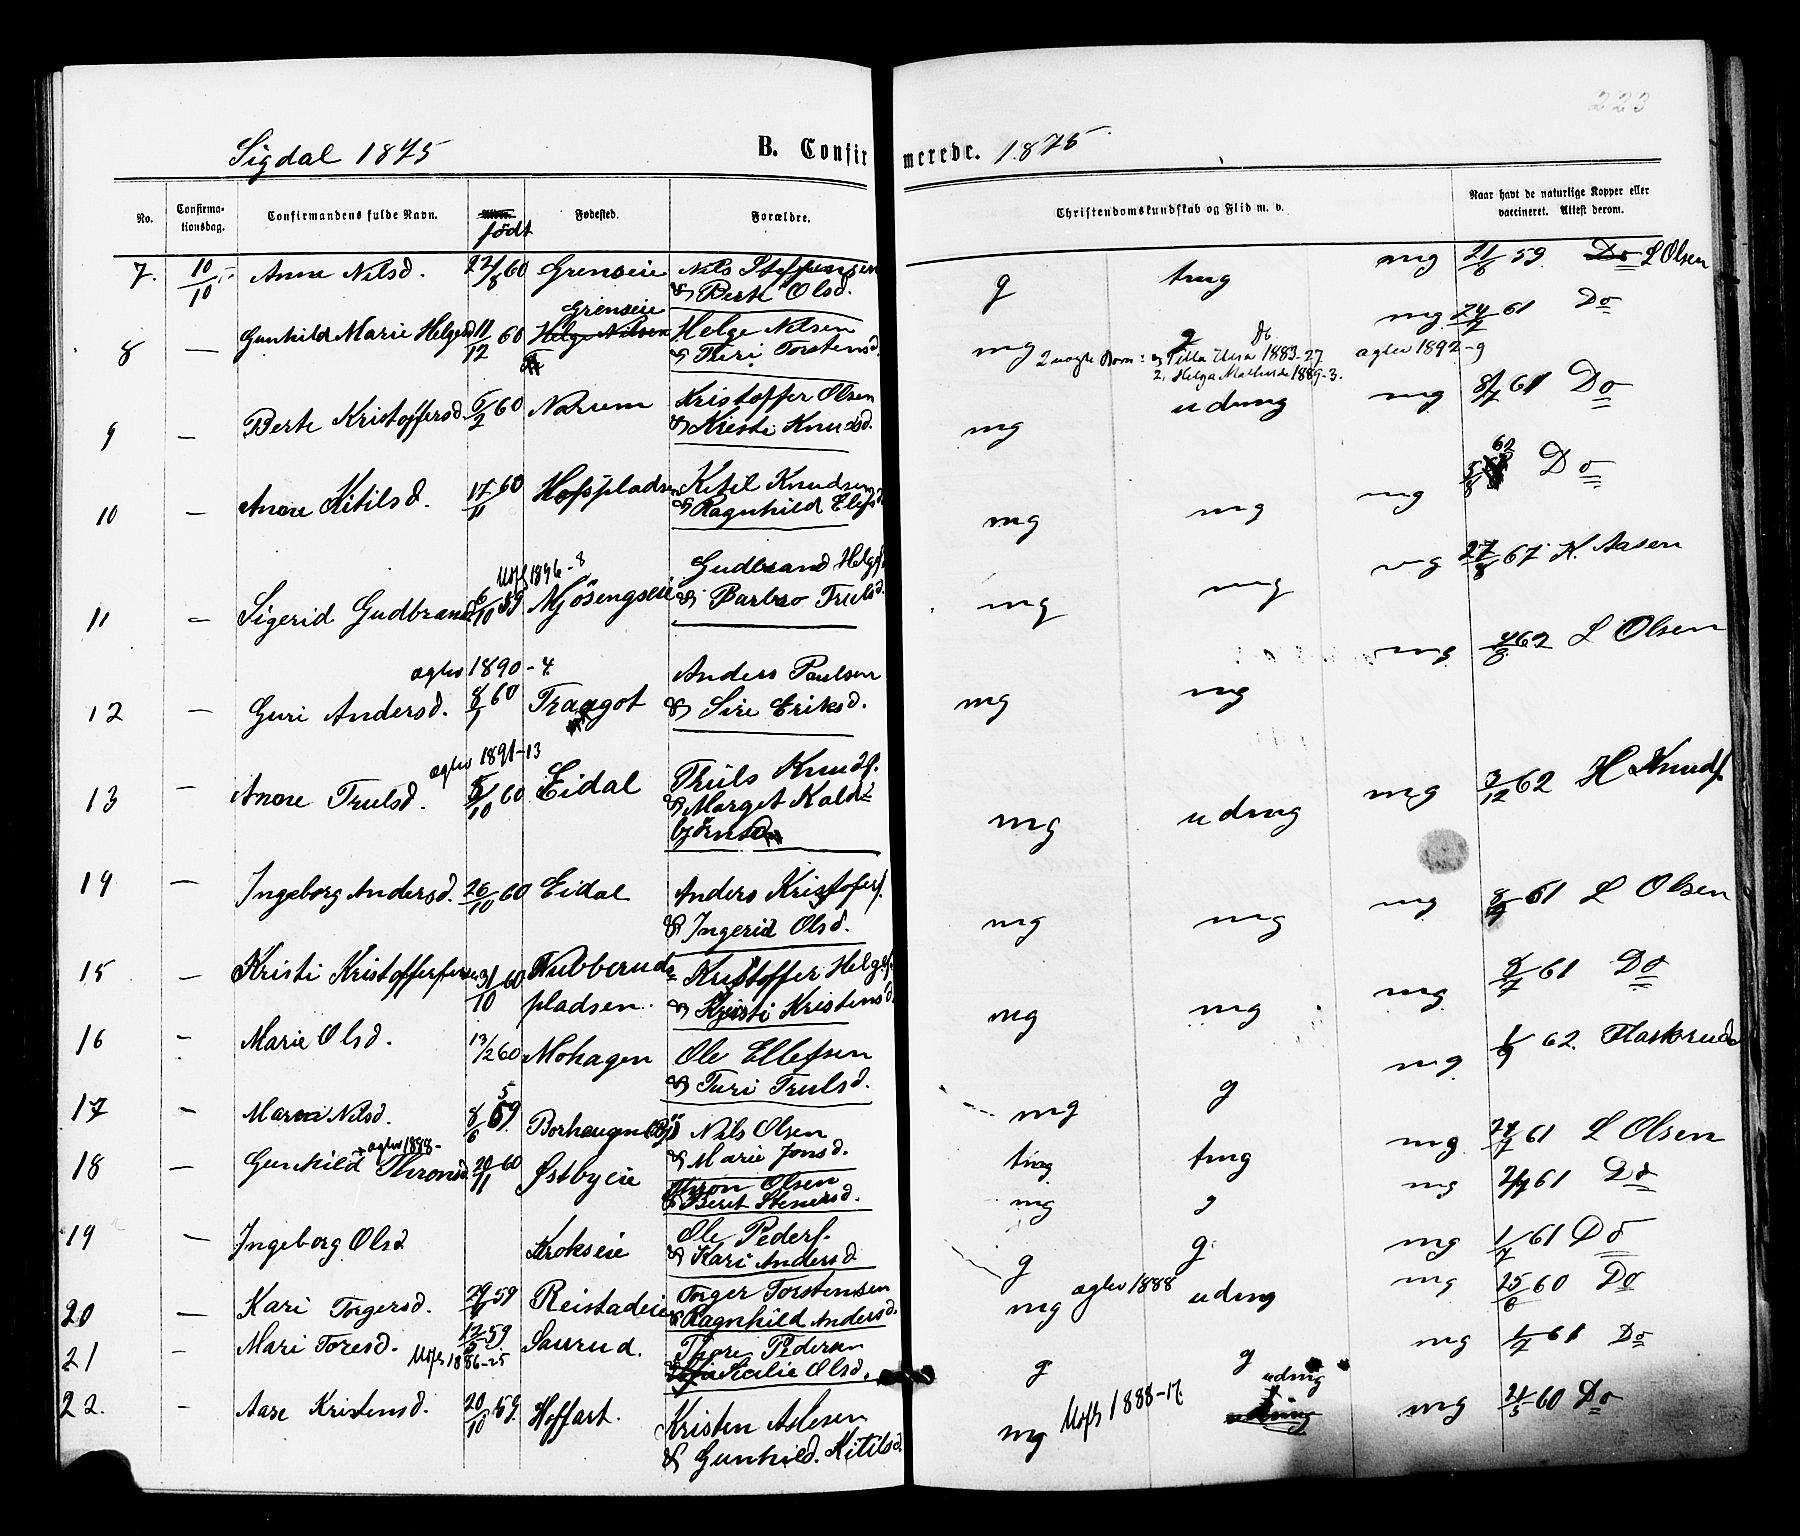 223
Sigdal 1875 B. Confirmerede. 1875
No. Confirmationsdag. Confirmandens fulde Navn. födt Fødested. Forældre. Christendomskundskab og Flid m. v. Naar havt de naturlige Kopper eller vaccineret. Attest derom.
7. 10/10 Anne Nilsd. 22/8 60 Grenseie Nils Steffensen g tmg mg 21/8 59. Do L Olsen
& Berte Olsd.
Grenseie
8 — Gunhild Marie Helgesd 11/12 60 Helge Nilsen Helge Nilsen mg g mg 24/7 61 Do
& Turi Torstensd.
2 uægte Born: 1883-27. aglev 1892-9
2, Helga Mathilde 1889-3.
9 — Berte Kristoffersd. 5/2 60 Narum Kristoffer Olsen mg udmg mg 8/7 61 Do
& Kristi Knudsd.
10 — Anne Kitilsd. 17/11 60 Hofspladsen Kitil Knudsen mg mg mg 5/8 62 Do
& Ragnhild Elefsd
1896-8
11 — Sigerid Gudbrandsd 6/10 59. Mjösengseie Gudbrand Helges. mg mg mg 27/8 67 K. Aasen
& Barbro Trulsd.
aglev 1890-4.
12 — Guri Andersd. 8/1 60 Traagot Anders Paulsen mg mg mg 4/8 62 L Olsen
& Siri Eriksd.
aglev 1891-13
13 — Anne Trulsd. 5/10 60 Eidal Truls Knuds. mg udmg mg 3/12 62 H Knuds.
& Marget Kold-
björnsd
14 — Ingeborg Andersd. 26/10 60 Eidal Anders Kristofers. mg mg mg 8/9 61 L Olsen
& Ingerid Olsd.
15 — Kristi Kristoffersen 31/10 60 Nubberuds- Kristoffer Helges. mg mg mg 8/7 61 Do
pladsen. & Kristi Kristensd
16 — Marie Olsd. 13/2 60 Mohagen Ole Ellefsen mg g mg 1/9 62. Flaskerud
& Turi Trulsd.
17 — Maren Nilsd. 8/6 59. Borhaugen Nils Olsen tmg tmg mg 24/7 61 L Olsen
& Marie Jonsd.
aglev 1888-
18 — Gunhild Thronsd 20/11 60 Østbyeie Thron Olsen mg g mg 2/7 61 Do
& Beret Stenersd.
19 — Ingeborg Olsd Krokseie Ole Peders. g g mg 1/7 61 Do
& Kari Andersd
20 — Kari Torgersd. 29/ 59 Reistadeie Torger Torstensen mg aglev 1888 udmg mg 25/6 60 Do
& Ragnhild Andersd.
21 — Mari Toresd. 17/5 59 Saurud. Thore Pedersen g g mg 1/7 61 Do
1886-25 Sicilie Olsd.
22. — Aase Kristensd. 20/10 59. Hoffart. Kristen Aslesen mg 1888-17. udmg mg 21/5 60 Do
& Gunhild. Kitilsd.